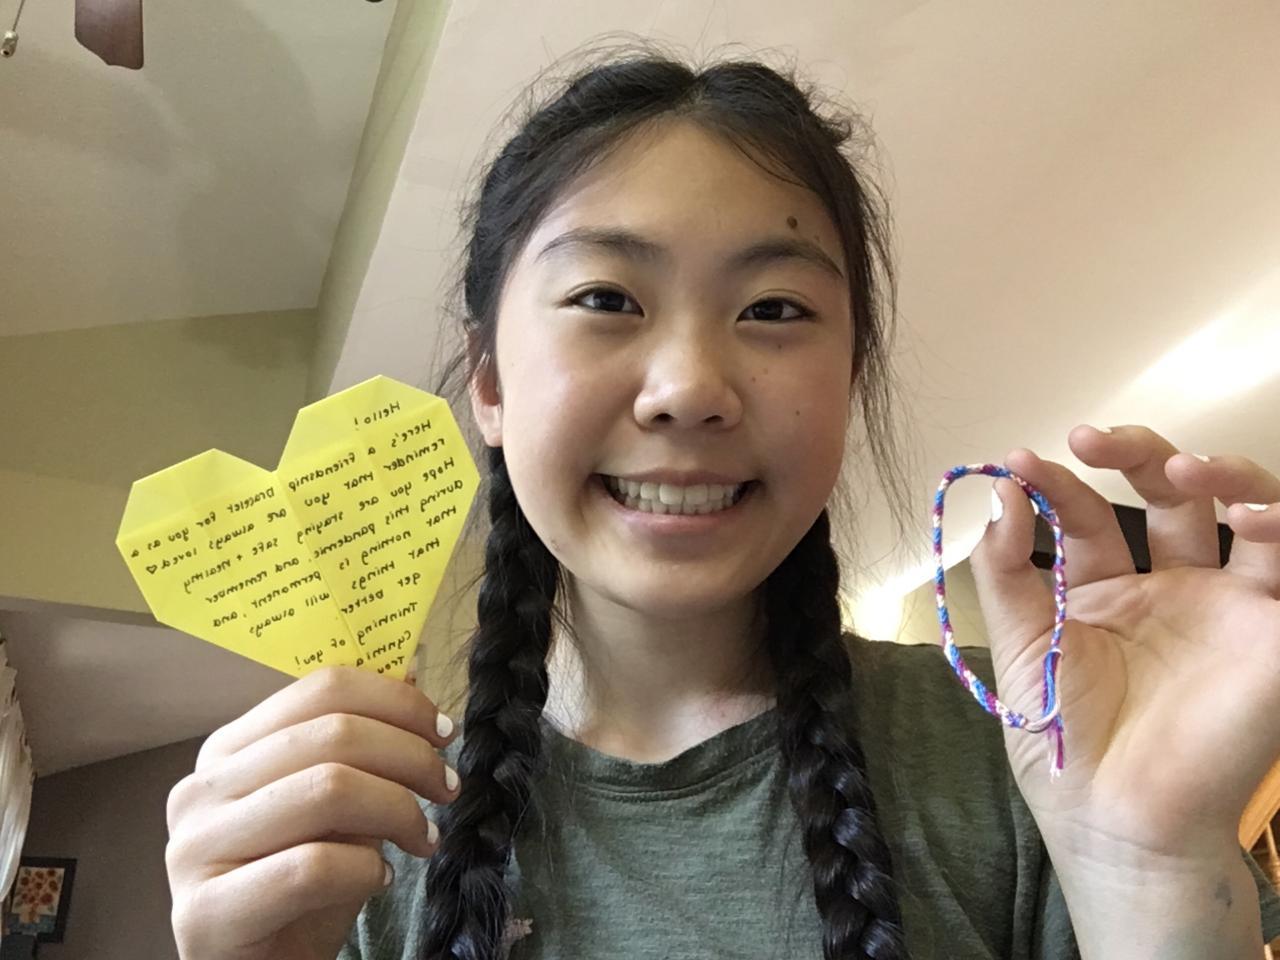 Hello!
Here's a friendship bracelet for you as a
reminder that you are always loved ♡
Hope you are staying safe + healthy
during this pandemic, and remember
that nothing is permanent, and
that things will always
get better.
Thinking of you!
Cynthia